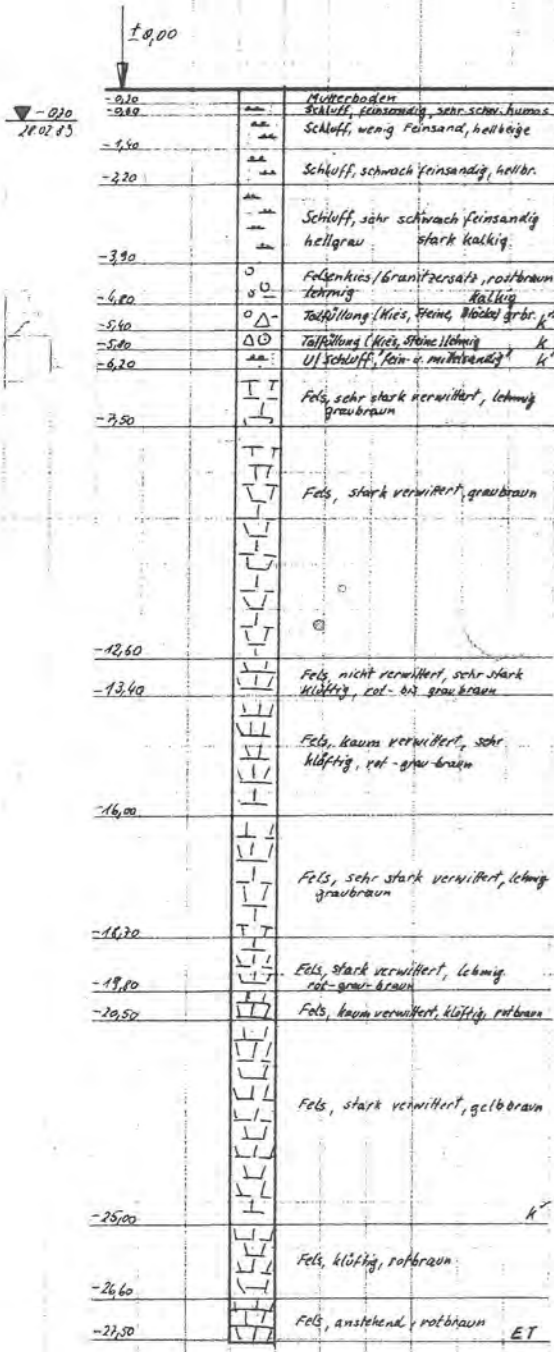 ± 0,00
-0,20 Mutterboden
-0,60 Schluff, feinsandig, sehr schw. humos
▼ -0,70
28.02.83
Schluff, wenig Feinsand, hellbeige
-1,40
Schluff, schwach feinsandig, hellbr.
-2,20
Schluff, sehr schwach feinsandig
hellgrau stark kalkig
-3,90
Felsenkies/Granitzersatz, rostbraun
lehmig kalkig
-4,80
Talfüllung (Kies, Steine, Blöcke) grbr.
k"
-5,40
Talfüllung (Kies, Steine) lehmig k'
-5,80
U/Schluff, fein- u. mittelsandig k'
-6,20
Fels, sehr stark verwittert, lehmig
graubraun
-7,50
Fels, stark verwittert, graubraun
-12,60
Fels, nicht verwittert, sehr stark
klüftig, rot- bis graubraun
-13,40
Fels, kaum verwittert, sehr
klüftig, rot-grau-braun
-16,00
Fels, sehr stark verwittert, lehmig
graubraun
-18,70
Fels, stark verwittert, lehmig
rot-grau-braun
-19,80
Fels, kaum verwittert, klüftig, rotbraun
-20,50
Fels, stark verwittert, gelbbraun
k'
-25,00
Fels, klüftig, rotbraun
-26,60
Fels, anstehend, rotbraun
-27,50 ET